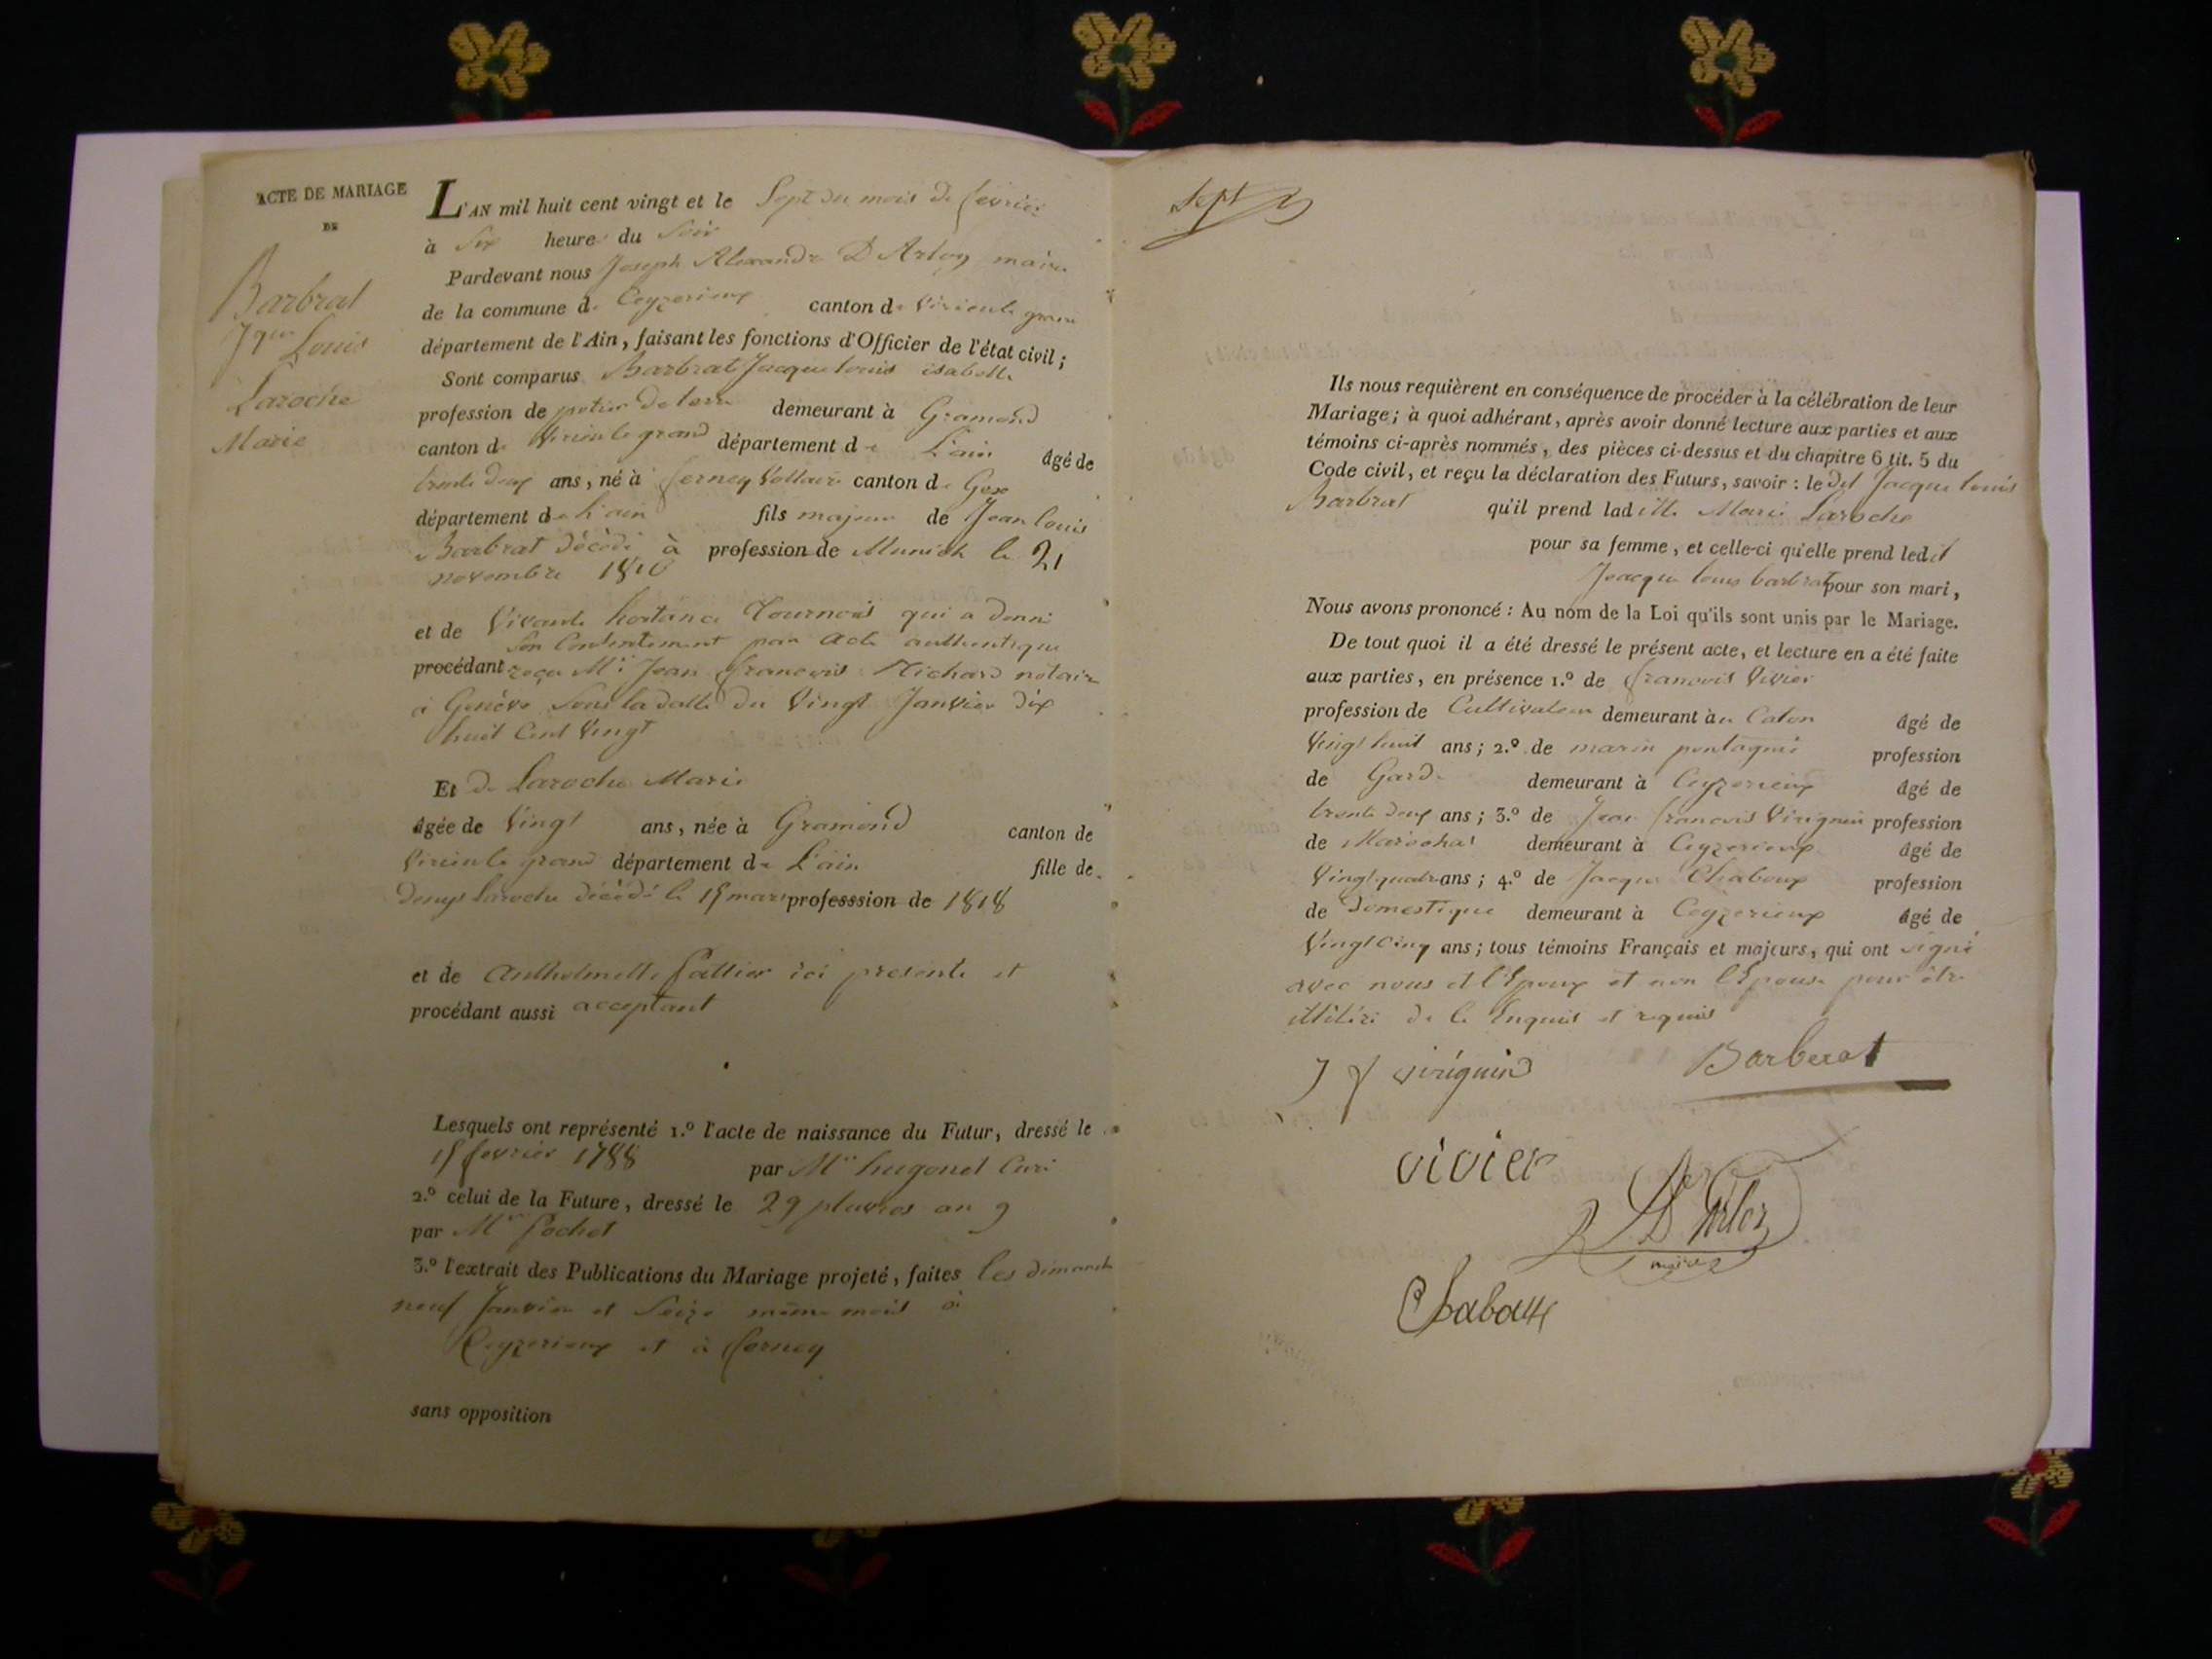 ACTE DE MARIAGE
DE
Barbrat
Jques Louis
Laroche
Marie
L'AN mil huit cent vingt et le Sept du mois de fevrier
à Six heure du Soir
Pardevant nous Joseph Alexandre D Arloz maire
de la commune de Ceyzerieux canton de Virieu le grand
département de l'Ain, faisant les fonctions d'Officier de l'état civil;
Sont comparus Barbrat Jacque louis isabelle
profession de potier de terre demeurant à Gramond
canton de Virieu le grand département de L'ain âgé de
trente deux ans, né à ferney Voltaire canton de Gex
département de L'ain fils majeur de Jean louis
Barbrat décédé à profession de Munich le 21
novembre 1810
et de Vivante hortance Tournois qui a donné
son Consentement par acte authentique
procédant reçu Mr Jean francois Richard notaire
à Genève sous la datte du Vingt Janvier dix
huit Cent Vingt
Et de Laroche Marie
âgée de Vingt ans, née à Gramond canton de
Virieu le grand département de L'ain fille de
Denys Laroche décédé le 15 mars profession de 1818
et de Anthelmette Pattier ici presente et
procédant aussi acceptant
Lesquels ont représenté 1.º l'acte de naissance du Futur, dressé le
15 fevrier 1788 par Mr hugonet Curé
2.º celui de la Future, dressé le 29 pluvios an 9
par Mr Pochet
3.º l'extrait des Publications du Mariage projeté, faites les dimanche
neuf Janvier et Seize même mois à
Ceyzerieux et à ferney
sans opposition
Sept
Ils nous requièrent en conséquence de procéder à la célébration de leur
Mariage; à quoi adhérant, après avoir donné lecture aux parties et aux
témoins ci-après nommés, des pièces ci-dessus et du chapitre 6 tit. 5 du
Code civil, et reçu la déclaration des Futurs, savoir: le dit Jacque louis
Barbrat qu'il prend laditte Marie Laroche
pour sa femme, et celle-ci qu'elle prend ledit
Jacque louis barbrat pour son mari,
Nous avons prononcé: Au nom de la Loi qu'ils sont unis par le Mariage.
De tout quoi il a été dressé le présent acte, et lecture en a été faite
aux parties, en présence 1.º de francois Vivier
profession de Cultivateur demeurant à Caton âgé de
Vingt huit ans; 2.º de marin pontagnié profession
de Garde demeurant à Ceyzerieux âgé de
trente deux ans; 3.º de Jean francois Virignin profession
de Marechal demeurant à Ceyzerieux âgé de
Vingt quatre ans; 4.º de Jacque Chaboux profession
de Domestique demeurant à Ceyzerieux âgé de
Vingt Cinq ans; tous témoins Français et majeurs, qui ont signé
avec nous et l'Epoux et non l'Epouse pour être
illitéré de ce Enquis et requis
J f virignin Barberat
vivier
D Arloz
maire
Chaboux